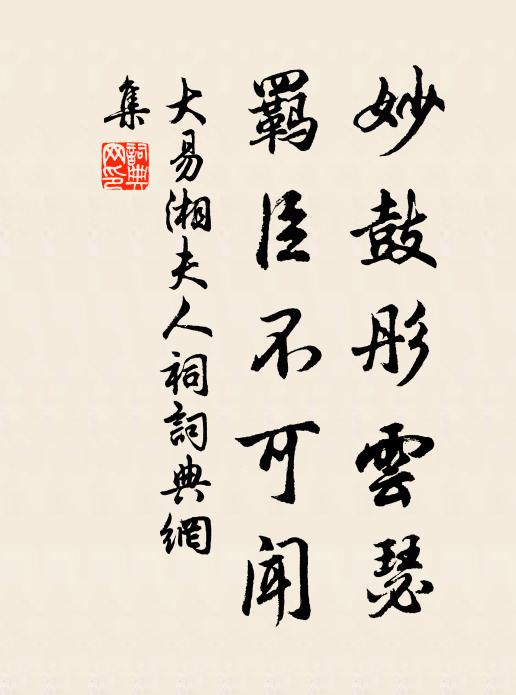 妙鼓彤雲瑟
羇臣不可聞
大易湘夫人祠詞典網
集
詞典网印